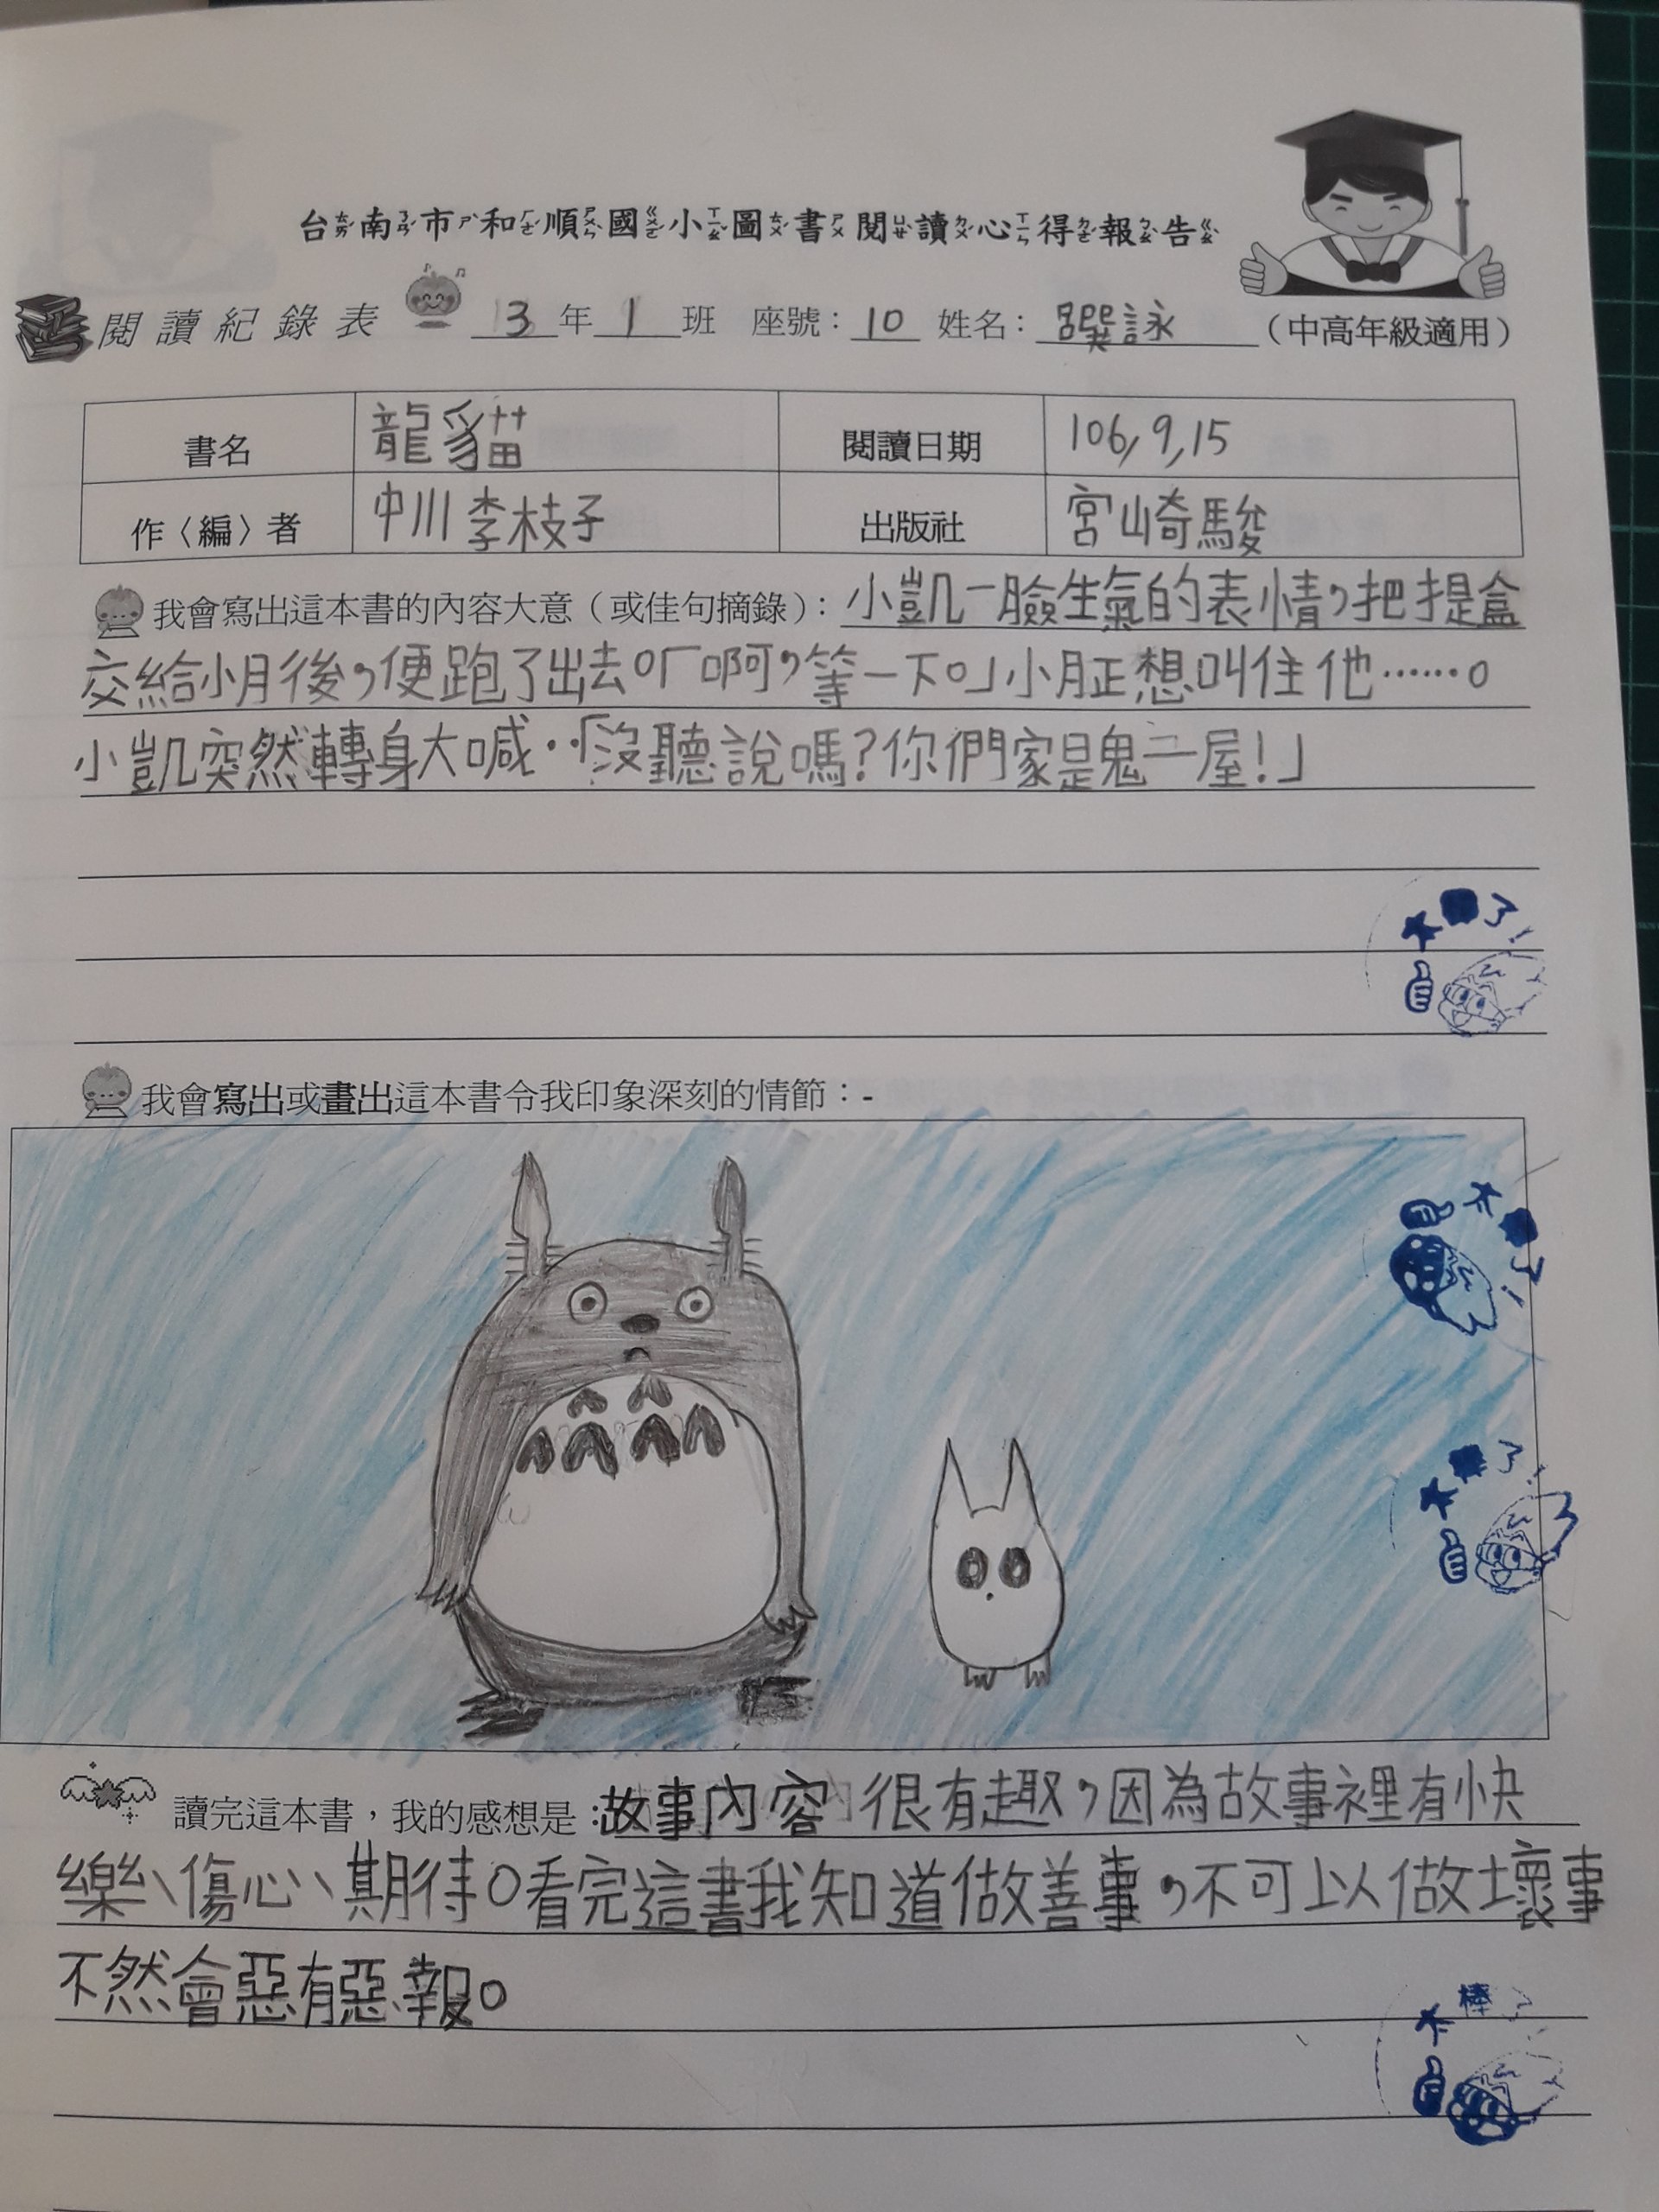 台南市和順國小圖書閱讀心得報告
閱讀紀錄表 3年1班 座號：10 姓名：詠（中高年級適用）
書名 龍貓 閱讀日期 106,9,15
作〈編〉者 中川李枝子 出版社 宮崎駿
我會寫出這本書的內容大意（或佳句摘錄）：小凱一臉生氣的表情，把提盒
交給小月後，便跑了出去。「啊，等一下。」小月正想叫住他……。
小凱突然轉身大喊：「沒聽說嗎？你們家是鬼屋！」
太棒了！
我會寫出或畫出這本書令我印象深刻的情節：-
太棒了！
太棒了！
讀完這本書，我的感想是：故事內容很有趣，因為故事裡有快
樂、傷心、期待。看完這書我知道做善事，不可以做壞事
不然會惡有惡報。
太棒了